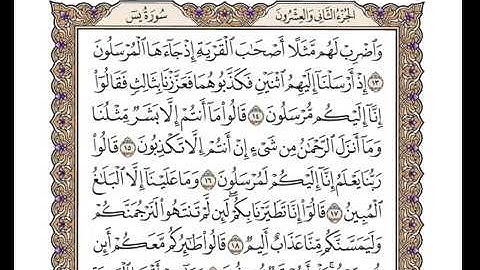 الجزء الثاني والعشرون
سورة يس
وَاضْرِبْ لَهُم مَّثَلًا أَصْحَابَ الْقَرْيَةِ إِذْ جَاءَهَا الْمُرْسَلُونَ
﴿١٣﴾ إِذْ أَرْسَلْنَا إِلَيْهِمُ اثْنَيْنِ فَكَذَّبُوهُمَا فَعَزَّزْنَا بِثَالِثٍ فَقَالُوا
إِنَّا إِلَيْكُم مُّرْسَلُونَ ﴿١٤﴾ قَالُوا مَا أَنتُمْ إِلَّا بَشَرٌ مِّثْلُنَا
وَمَا أَنزَلَ الرَّحْمَٰنُ مِن شَيْءٍ إِنْ أَنتُمْ إِلَّا تَكْذِبُونَ ﴿١٥﴾ قَالُوا
رَبُّنَا يَعْلَمُ إِنَّا إِلَيْكُمْ لَمُرْسَلُونَ ﴿١٦﴾ وَمَا عَلَيْنَا إِلَّا الْبَلَاغُ
الْمُبِينُ ﴿١٧﴾ قَالُوا إِنَّا تَطَيَّرْنَا بِكُمْ لَئِن لَّمْ تَنتَهُوا لَنَرْجُمَنَّكُمْ
وَلَيَمَسَّنَّكُم مِّنَّا عَذَابٌ أَلِيمٌ ﴿١٨﴾ قَالُوا طَائِرُكُم مَّعَكُمْ أَئِن